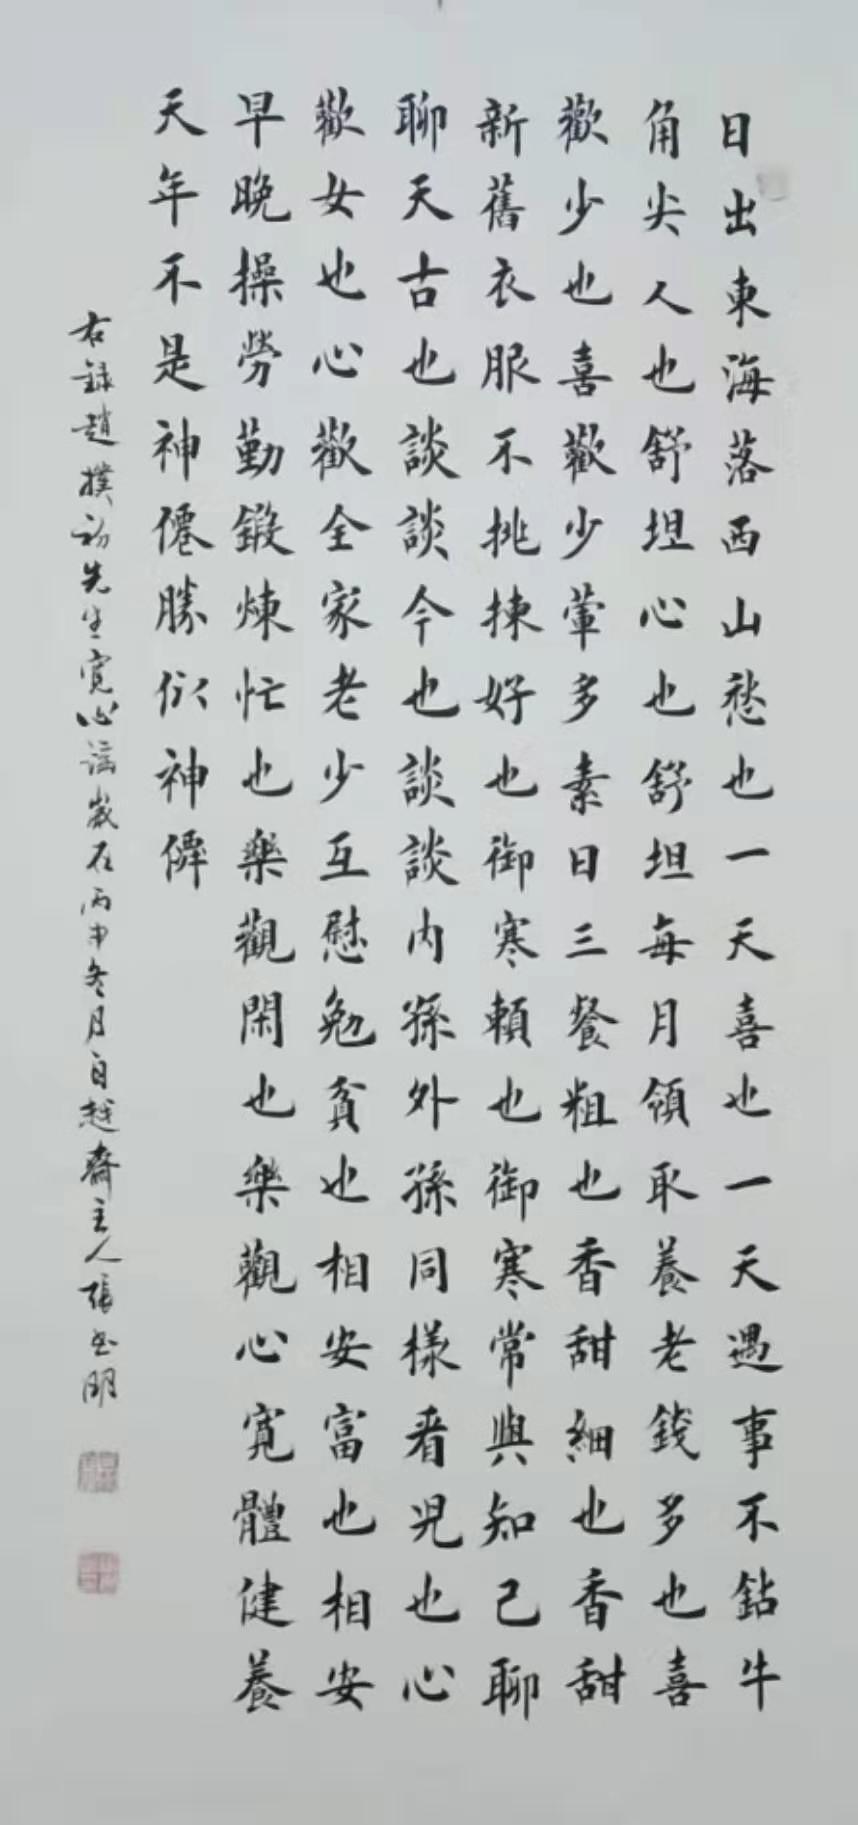 日出東海落西山愁也一天喜也一天遇事不鉆牛
角尖人也舒坦心也舒坦每月領取養老錢多也喜
歡少也喜歡少葷多素日三餐粗也香甜細也香甜
新舊衣服不挑揀好也御寒賴也御寒常與知己聊
聊天古也談談今也談談内孫外孫同樣看児也心
歡女也心歡全家老少互慰勉貧也相安富也相安
早晚操勞勤鍛煉忙也樂觀閑也樂觀心寬體健養
天年不是神僊勝似神僊
右録趙撲初先生寬心謡歲在丙申冬月自越齋主人張明